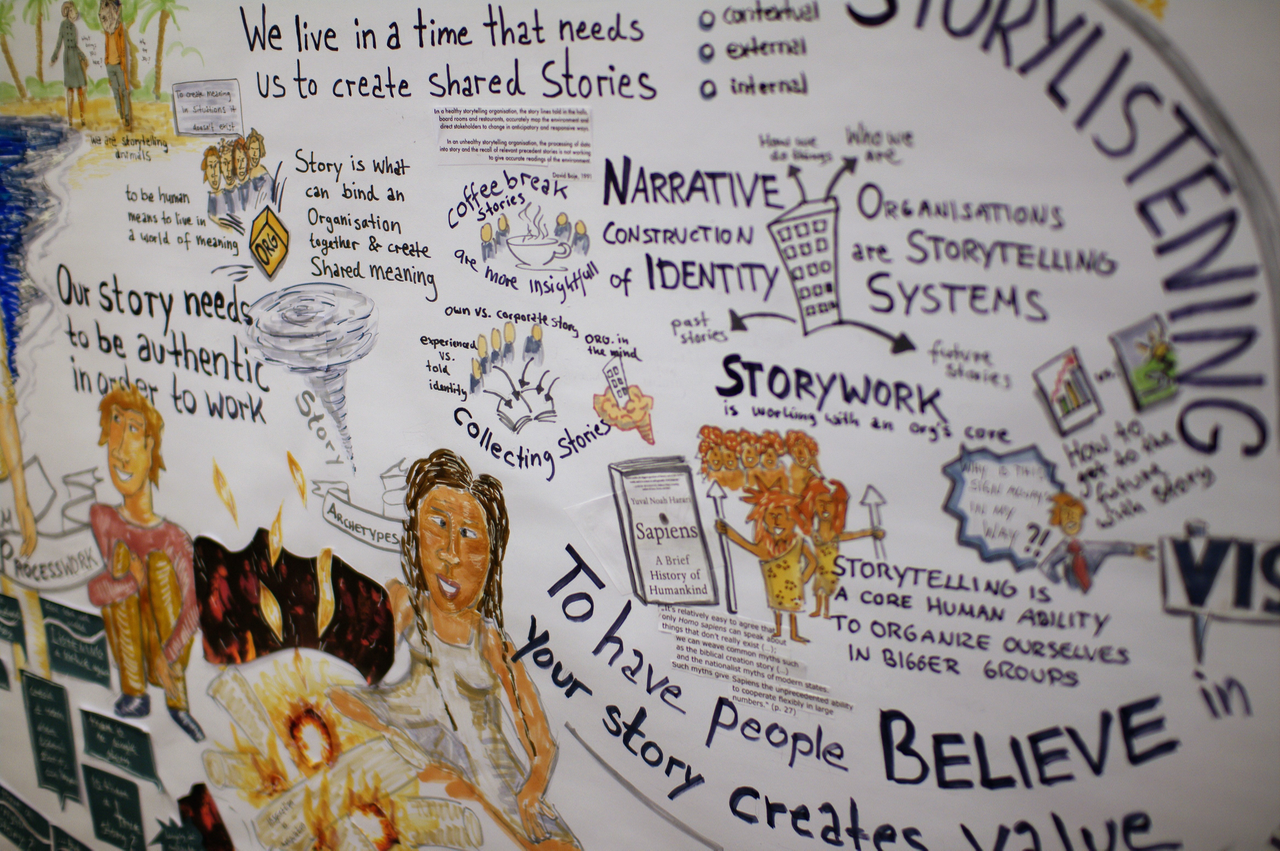 We live in a time that needs
us to create shared Stories
contextual
external
internal
STORYLISTENING
To create meaning
in situations it
doesn't exist
we are storytelling
animals
In a healthy storytelling organisation, the story lines told in the halls,
board rooms and restaurants, accurately map the environment and
direct stakeholders to change in anticipatory and responsive ways.
In an unhealthy storytelling organisation, the processing of data
into story and the recall of relevant precedent stories is not working
to give accurate readings of the environment.
David Boje, 1991
to be human
means to live in
a world of meaning
ORG
Story is what
can bind an
Organisation
together & create
Shared meaning
Coffee break
Stories
are more insightfull
NARRATIVE
CONSTRUCTION
of IDENTITY
How we
do things
Who we
are
ORGANISATIONS
are STORYTELLING
SYSTEMS
past
stories
future
stories
Our story needs
to be authentic
in order to work
Story
own vs. corporate story
experienced
vs.
told
identity
ORG. in
the mind
Collecting Stories
STORYWORK
is working with an org's core
vs.
How to
get to the
future
with story
WHY
IN MY
WAY
?!
VIS
PROCESSWORK
ARCHETYPES
Yuval Noah Harari
Sapiens
A Brief
History of
Humankind
STORYTELLING IS
A CORE HUMAN ABILITY
TO ORGANIZE OURSELVES
IN BIGGER GROUPS
"It's relatively easy to agree that
only Homo sapiens can speak about
things that don't really exist (...);
we can weave common myths such
as the biblical creation story (...)
and the nationalist myths of modern states.
Such myths give Sapiens the unprecedented ability
to cooperate flexibly in large
numbers." (p. 27)
To have people BELIEVE in
your story creates value